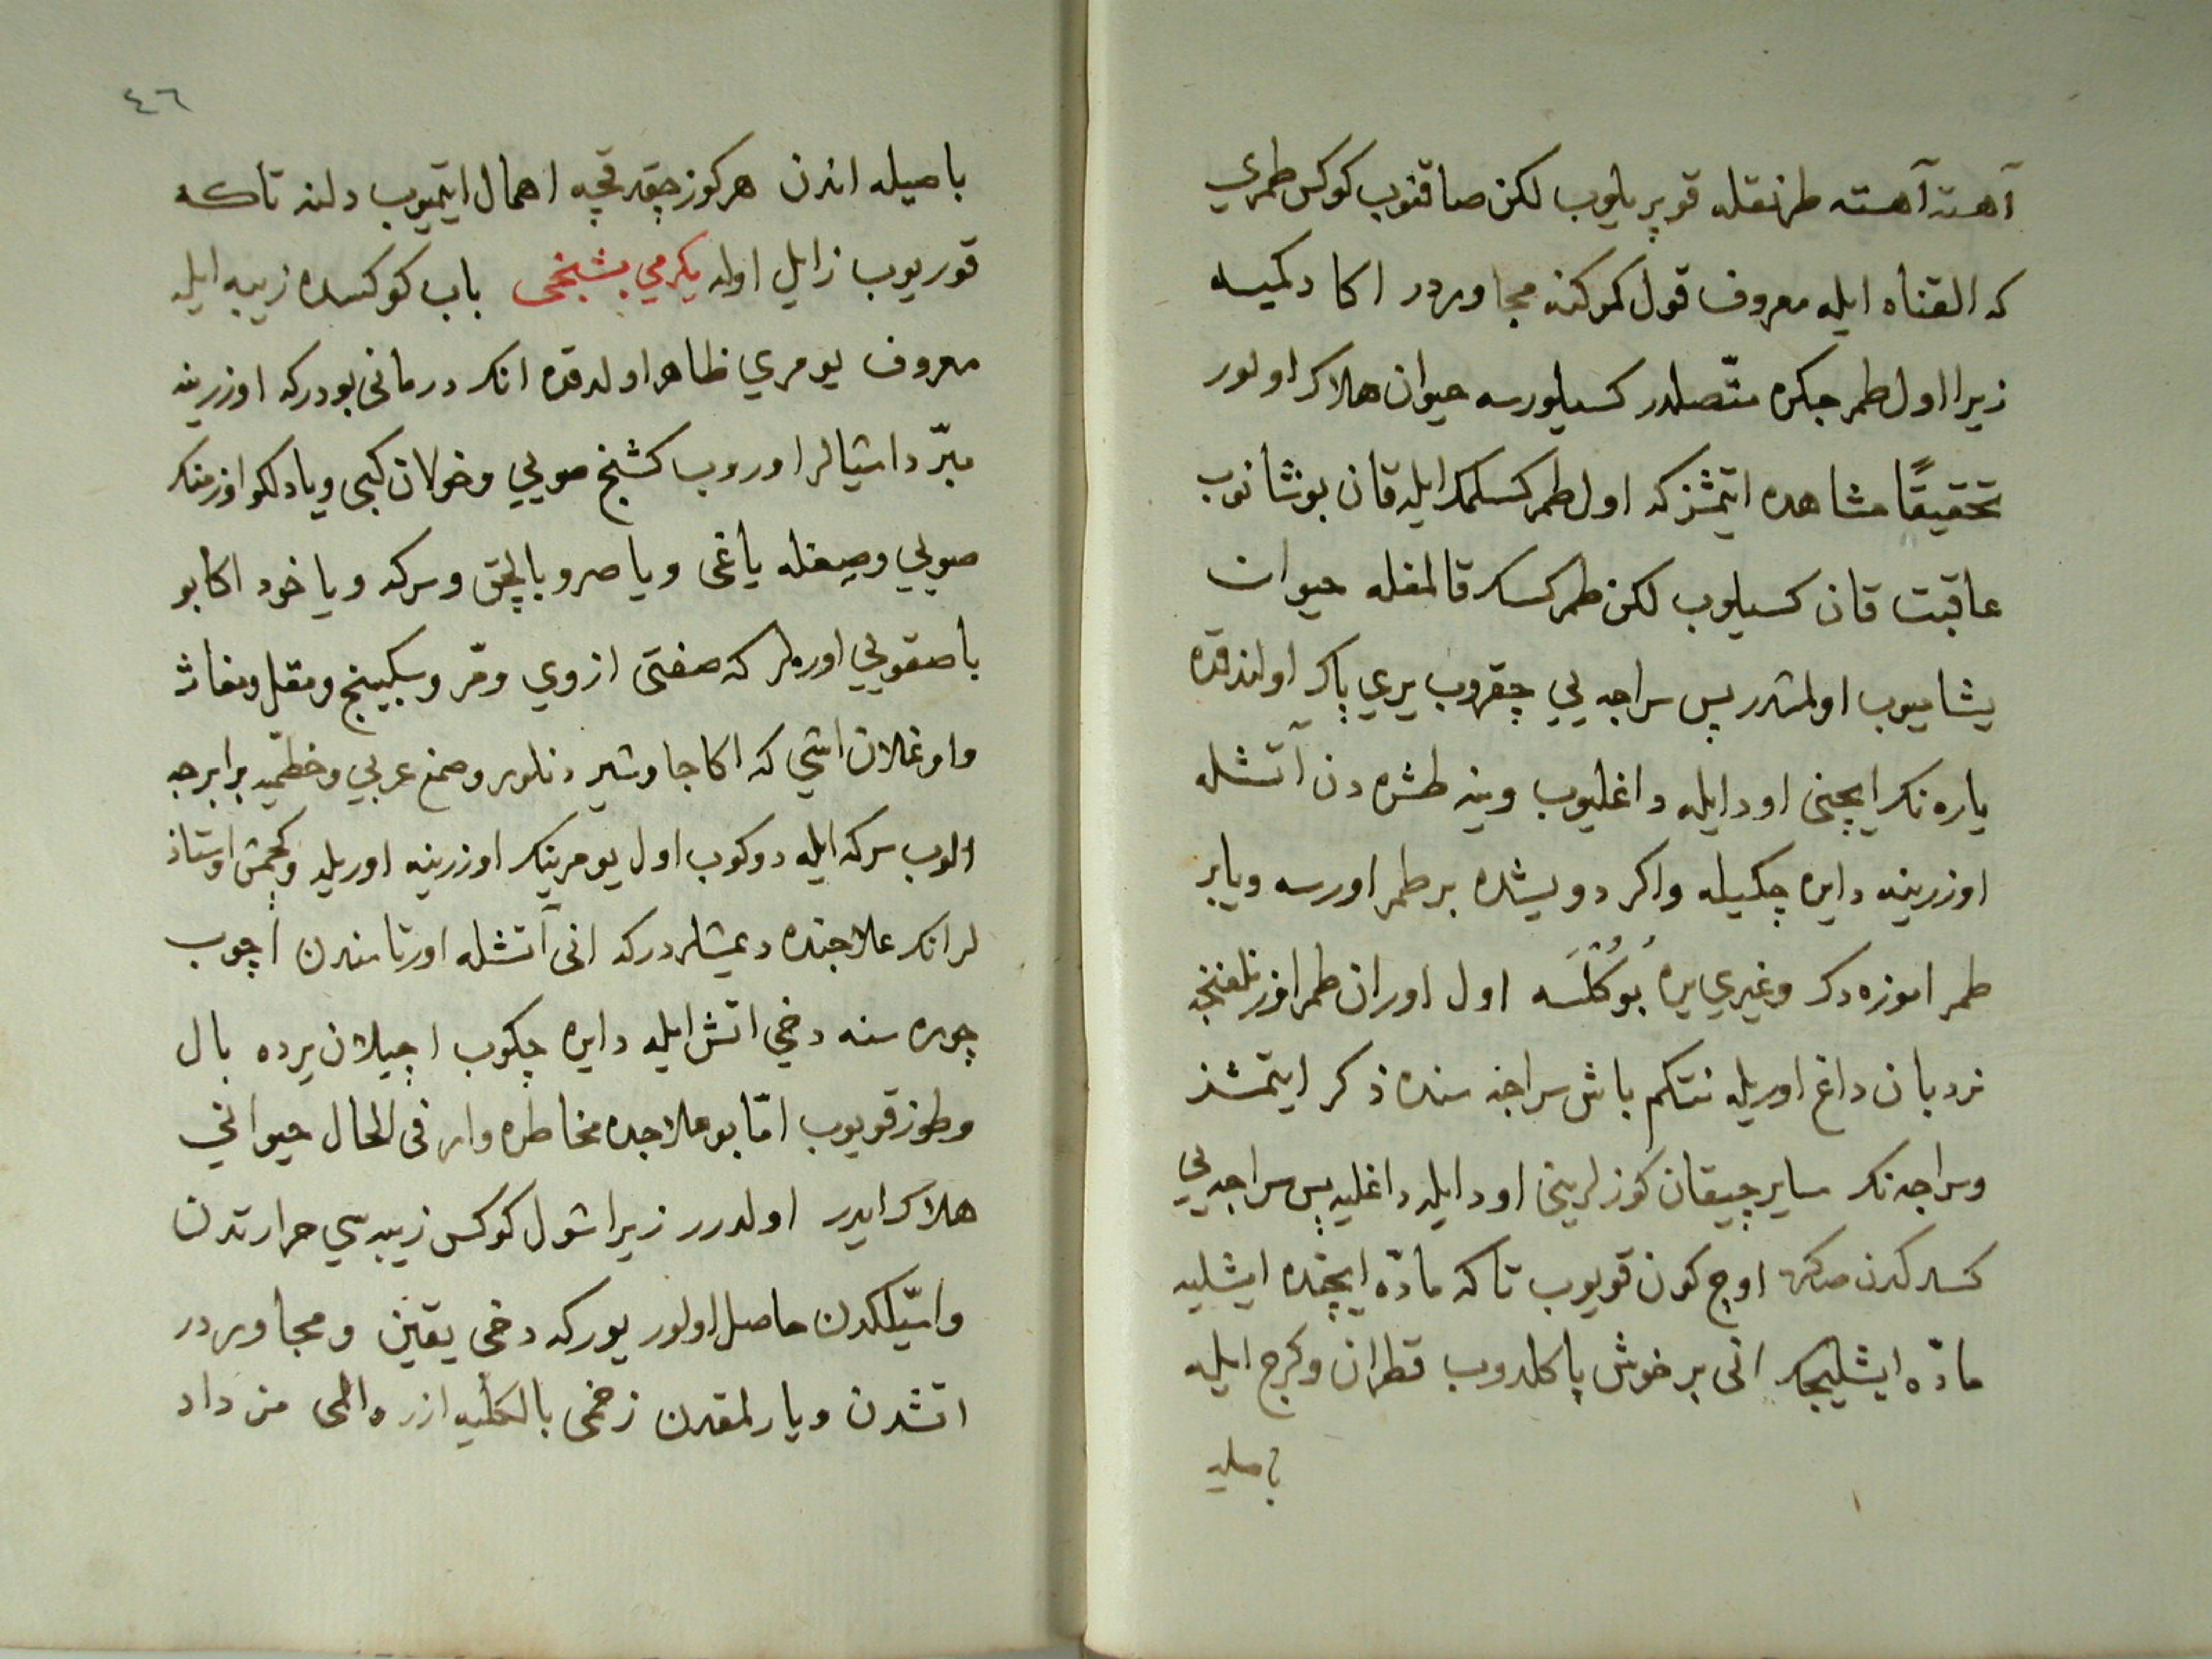 آهسته آهسته طرنقله قوپریلوب لکن صاقنوب کوکس طمری
که القناه ایله معروف قول کموکنه مجاوردر اکا دکمیسه
زیرا اول طمر جکره متّصلدر کسیلورسه حیوان هلاک اولور
تحقیقًا مشاهده ایتمشز که اول طمر کسلمک ایله قان بوشانوب
عاقبت قان کسیلوب لکن طمر کسک قالمغله حیوان
یشامیوب اولمشدر پس سراجه یی چقروب یری پاک اولندقده
یاره نک ایچنی اود ایله داغلیوب وینه طشره دن آتشله
اوزرینه دایره چکیله واکر دویشده بر طمر اورسه ویا بر
طمر اموزه دک وغیری یره بوکلسه اول اوران طمر اوزنلغنجه
نردبان داغ اوریله نتکم باش سراجه سنده ذکر ایتمشز
وسراجه نک سایر چیقان کوزلرینی اود ایله داغلیه پس سراجه یی
کسدکدن صکره اوچ کون قویوب تا که مادّه ایچنده ایشلیه
مادّه ایشلیجک انی بر خوش پاکلدوب قطران وکرج ایله
باصیله
٤٦
باصیله اندن هر کوز چقدقچه اهمال ایتمیوب دلنه تا که
قوریوب زایل اوله یکرمی بشنجی باب کوکسده زیبه ایله
معروف یومری ظاهر اولدقده انک درمانی بودر که اوزرینه
مبرّد اشیالر اوروب کشنج صویی وخولان کبی ویا دلکو اوزمنک
صویی وصیغله یاغی ویا صرو بالچق وسرکه ویا خود اکا بو
یاصقویی اورەلر که صفتی ازوی ومرّ وسکبینج ومقل ومغاث
واوغلان اشی که اکا جاوشیر دنلور وصمغ عربی وخطمّیه برابرجه
الوب سرکه ایله دوکوب اول یومرینک اوزرینه اوریله وکچمش اوستاذ
لر انک علاجنده دیمشلردر که انی آتشله اورتاسندن اچوب
چوره سنه دخی اتش ایله دایره چکوب اچیلان یرده بال
وطوز قویوب امّا بو علاجده مخاطره وار فی الحال حیوانی
هلاک ایدر اولدرر زیرا شول کوکس زیبه سی حرارتدن
واسّیلکدن حاصل اولور یورکه دخی یقین ومجاوردر
اتشدن ویارلمقدن زخمی بالکلّیه ازره المی مزداد